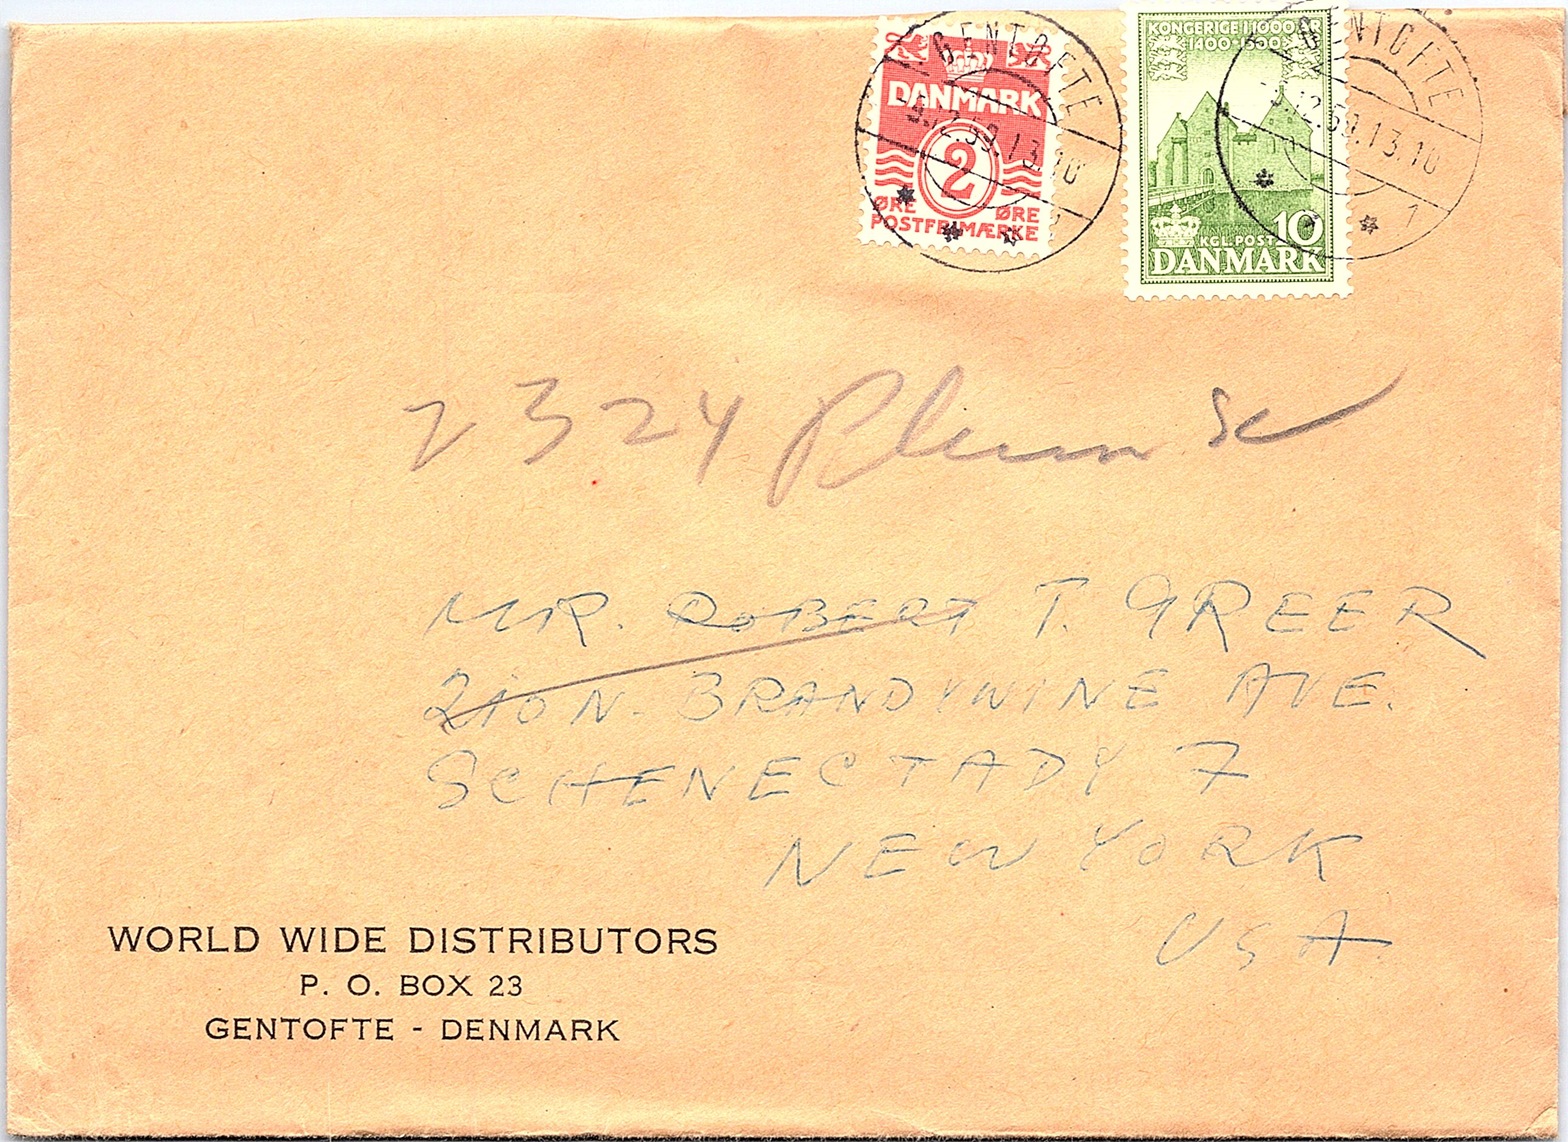 DANMARK
2
ØRE ØRE
POSTFRIMÆRKE
GENTOFTE
-9.12.59.13.10
KONGERIGE I 1000 ÅR
1400-1500
KGL. POST 10
DANMARK
GENTOFTE
-9.12.59.13.10
1
2324 Plum St
MR. ROBERT T. GREER
210 N. BRANDYWINE AVE.
SCHENECTADY 7
NEW YORK
USA
WORLD WIDE DISTRIBUTORS
P. O. BOX 23
GENTOFTE - DENMARK